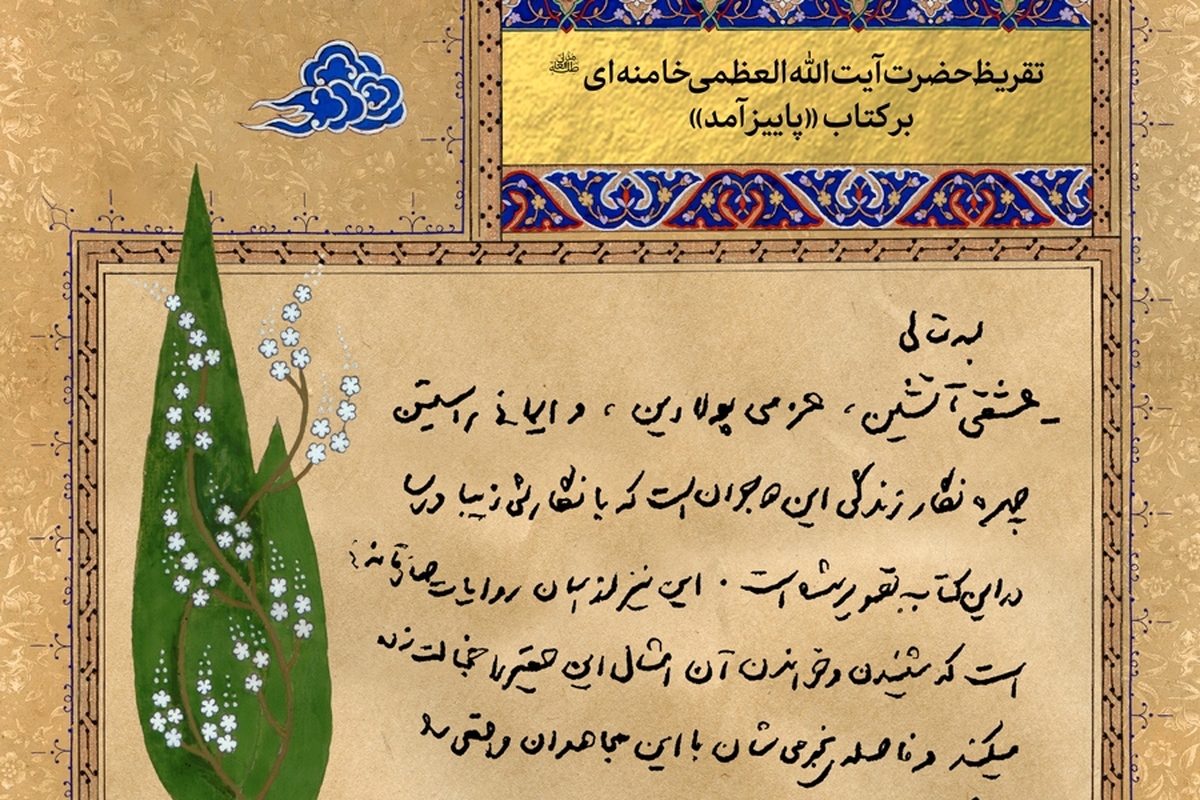 تقریظ حضرت آیت الله العظمی خامنه‌ای مدظله‌العالی
بر کتاب «پاییز آمد»
بسمه‌تعالی
ـ عشقی آتشین، عزمی پولادین، و ایمانی راستین
چهره نگار زندگی این دو جوان است که با نگارشی زیبا و رسا
در این کتاب به تصویر کشیده شده است. این نیز از آن روایات صادقانه‌ئی
است که شنیدن و خواندن آن امثال این حقیر را خجالت زده
میکند و فاصله‌ی نجومی‌شان با این مجاهدان واقعی را